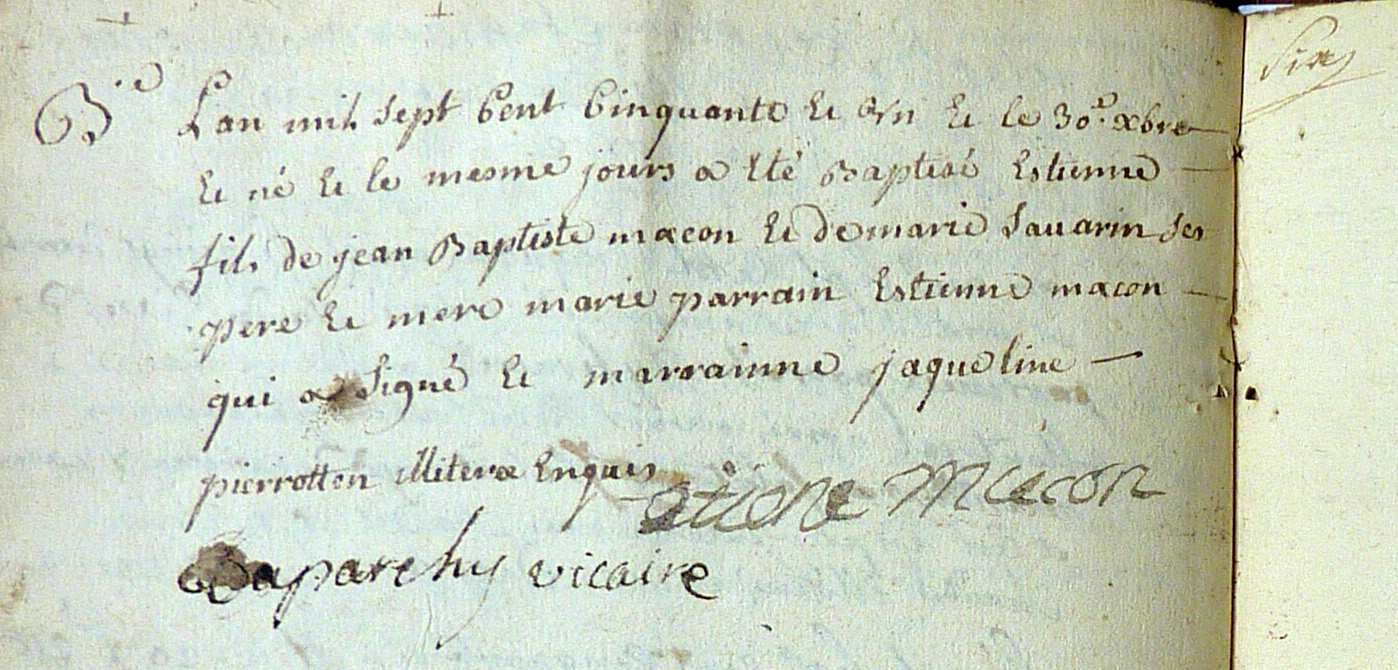 B.e Lan mil sept Cent Cinquante et Un et le 30.e xbre
et né et le mesme jours a été Baptisé Estienne
fils de jean Baptiste macon et de marie Savarin ses
pere et mere marie parrain Estienne macon
qui a signé et marrainne jaqueline
pierrotton illiterœ Enquis
etiene Macon
vicaire
Six